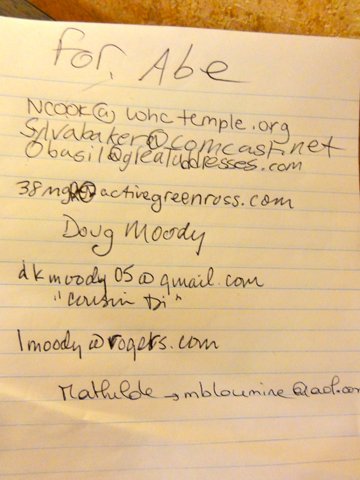 For, Abe
Ncook@whctemple.org
Silvabaker@comcast.net
Obasil@greataddresses.com
38mgr@activegreenross.com
Doug Moody
dkmoody05@gmail.com
"Cousin Di"
lmoody@rogers.com
Mathilde → mbloumine@aol.com